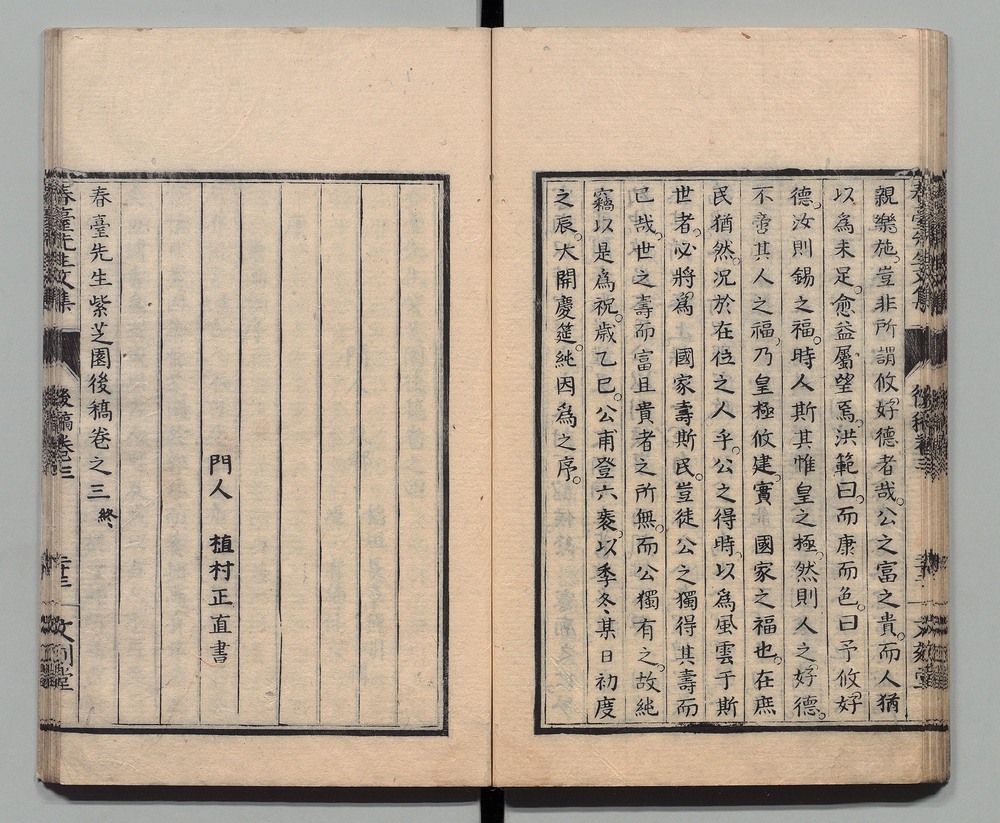 親樂施。豈非所謂攸好德者哉。公之富之貴。而人猶
以為未足。愈益屬望焉。洪範曰。而康而色。曰予攸好
德。汝則錫之福。時人斯其惟皇之極。然則人之好德。
不啻其人之福。乃皇極攸建。實國家之福也。在庶
民猶然。況於在位之人乎。公之得時。以為風雲于斯
世者。必將爲 國家壽斯民。豈徒公之獨得其壽而
已哉。世之壽而富且貴者之所無。而公獨有之。故純
竊以是爲祝。歲乙巳。公甫登六袠。以季冬某日初度
之辰。大開慶筵。純因爲之序。
門人 植村正直書
春臺先生紫芝園後稿卷之三終
春臺先生文集 後稿卷三